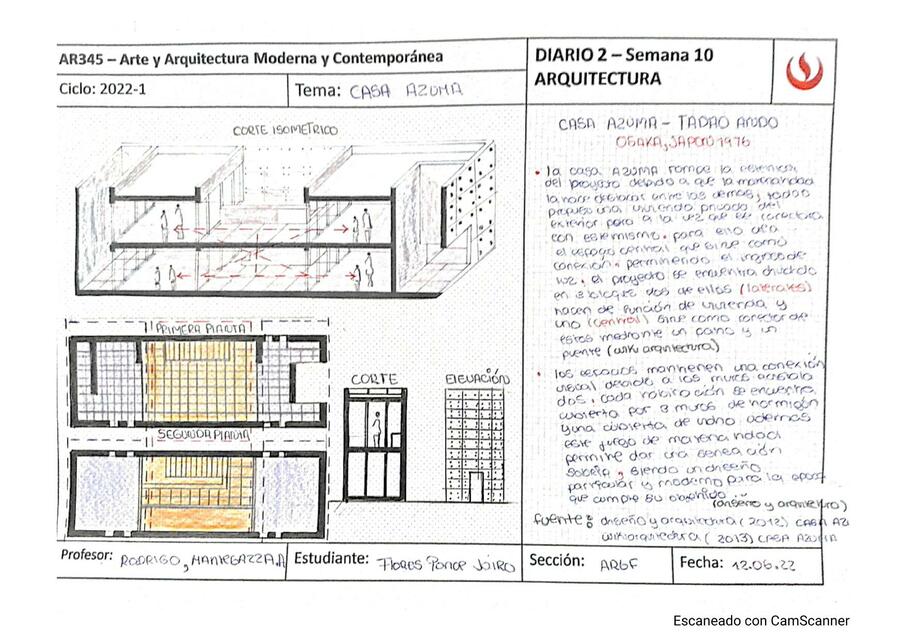 AR345 – Arte y Arquitectura Moderna y Contemporánea
DIARIO 2 – Semana 10
ARQUITECTURA
Ciclo: 2022-1
Tema: CASA AZUMA
CORTE ISOMETRICO
CASA AZUMA - TADAO ANDO
OSAKA, JAPON 1976
• la casa AZUMA rompe la estetica
del proyecto debido a que la materialidad
la hace desitonar entre las demas, tadao
propuso una vivienda privada del
exterior pero a la vez que se conectara
con este mismo. para ello uso
el espacio central que sirve como
conexión, permitiendo el ingreso de
luz. el proyecto se encuentra dividido
en 3 bloques dos de ellos (laterales)
hacen de función de vivienda y
uno (central) sirve como conector de
estos mediante un patio y un
puente (wiki arquitectura)
• los espacios mantienen una conexión
visual debido a los muros
dos, cada habitación se encuentra
cubierta por 3 muros de hormigón
y una cubierta de vidrio ademas
este juego de materialidad
permite dar una sensación
sobria, siendo un diseño
particular y moderno para la epoca
que cumple su objetivo.
(diseño y arquitectura)
fuente: diseño y arquitectura (2012) CASA AZ
wikiarquitectura (2013) CASA AZUMA
PRIMERA PLANTA
SEGUNDA PLANTA
CORTE
ELEVACIÓN
Profesor: RODRIGO, MANTEGAZZA.A
Estudiante: Flores Ponce Jairo
Sección: AR6F
Fecha: 12.06.22
Escaneado con CamScanner